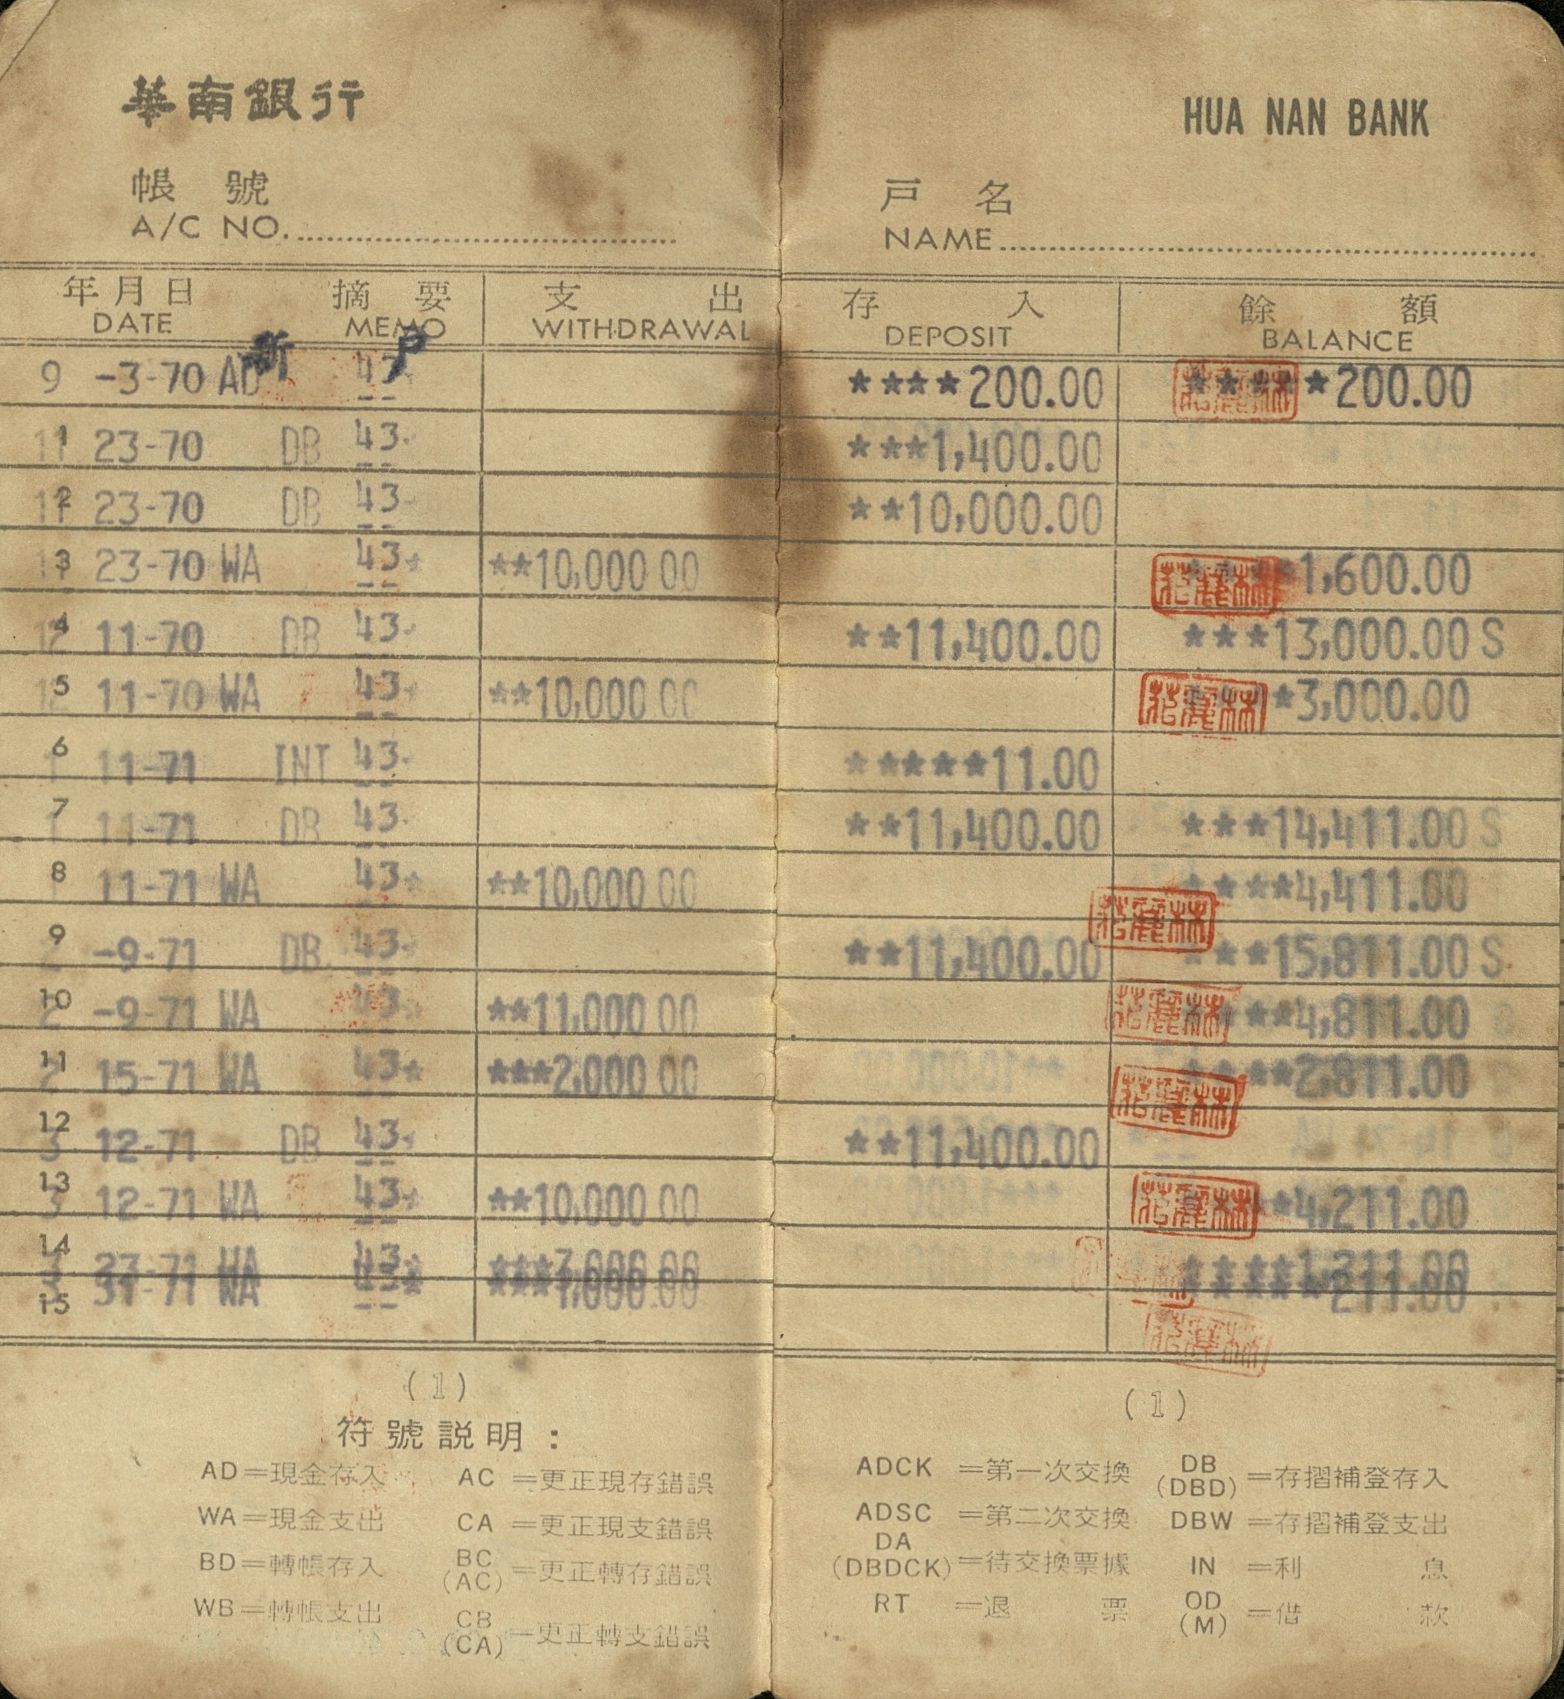 華南銀行 HUA NAN BANK
帳號 戶名
A/C NO. NAME
年月日 摘要 支出 存入 餘額
DATE MEMO WITHDRAWAL DEPOSIT BALANCE
新戶
9 -3-70 AD 43 ****200.00 *200.00
1 11 23-70 DB 43 ***1,400.00
2 11 23-70 DB 43 **10,000.00
3 11 23-70 WA 43* **10,000 00 1,600.00
4 12 11-70 DB 43 **11,400.00 ***13,000.00 S
5 12 11-70 WA 43* **10,000 00 *3,000.00
6 1 11-71 INT 43 *****11.00
7 1 11-71 DB 43 **11,400.00 ***14,411.00 S
8 1 11-71 WA 43* **10,000 00 ****4,411.00
9 2 -9-71 DB 43 **11,400.00 ***15,811.00 S
10 2 -9-71 WA 43* **11,000 00 ***4,811.00
11 2 15-71 WA 43* ***2,000 00 ****2,811.00
12 3 12-71 DB 43 **11,400.00
13 3 12-71 WA 43* **10,000 00 **4,211.00
14 3 23-71 WA 43* ***3,000 00 ****1,211.00
15 31-71 WA 43* ***1,000.00 ******211.00
(1) (1)
符號説明：
AD＝現金存入 AC＝更正現存錯誤 ADCK＝第一次交換 DB (DBD)＝存摺補登存入
WA＝現金支出 CA＝更正現支錯誤 ADSC＝第二次交換 DBW＝存摺補登支出
BD＝轉帳存入 BC (AC)＝更正轉存錯誤 DA (DBDCK)＝待交換票據 IN＝利息
WB＝轉帳支出 CB (CA)＝更正轉支錯誤 RT＝退票 OD (M)＝借款